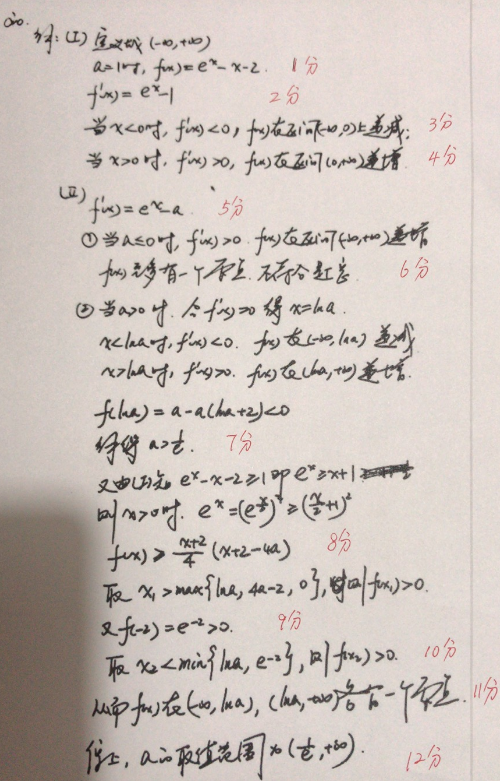 20.
解：(Ⅰ) 定义域 (-∞, +∞)
a=1时, f(x)=e^x-x-2. 1分
f'(x)=e^x-1 2分
当x<0时, f'(x)<0, f(x)在区间(-∞,0)上递减; 3分
当x>0时, f'(x)>0, f(x)在区间(0,+∞)递增. 4分
(Ⅱ)
f'(x)=e^x-a. 5分
①当a≤0时, f'(x)>0. f(x)在区间(-∞,+∞)递增
f(x)至多有一个零点. 不符合题意. 6分
②当a>0时. 令f'(x)=0得x=lna.
x<lna时, f'(x)<0. f(x)在(-∞,lna)递减
x>lna时, f'(x)>0. f(x)在(lna,+∞)递增.
f(lna)=a-a(lna+2)<0
解得a>1/e. 7分
又由(Ⅰ)知 e^x-x-2≥1即e^x≥x+1
则x>0时. e^x=(e^{x/2})^2≥(x/2+1)^2
f(x)≥(x+2)/4 (x+2-4a) 8分
取x₁>max{lna, 4a-2, 0}, 则f(x₁)>0.
又f(-2)=e^{-2}>0. 9分
取x₂<min{lna, e-2}, 则f(x₂)>0. 10分
从而f(x)在(-∞,lna), (lna,+∞)各有一个零点. 11分
综上, a的取值范围为(1/e,+∞). 12分